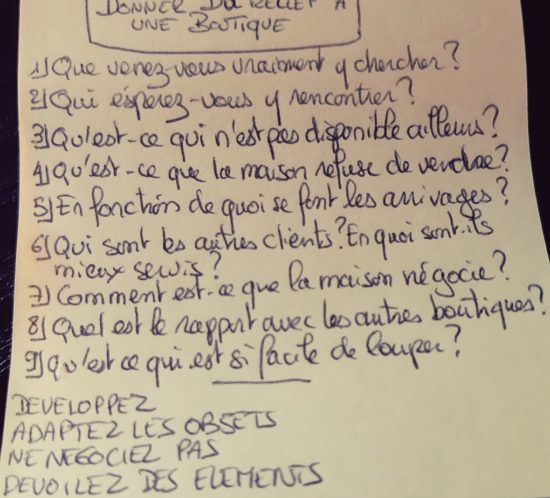 DONNER DU RELIEF A
UNE BOUTIQUE
1) Que venez-vous vraiment y chercher?
2) Qui espérez-vous y rencontrer?
3) Qu'est-ce qui n'est pas disponible ailleurs?
4) Qu'est-ce que la maison refuse de vendre?
5) En fonction de quoi se font les arrivages?
6) Qui sont les autres clients? En quoi sont-ils
mieux servis?
7) Comment est-ce que la maison négocie?
8) Quel est le rapport avec les autres boutiques?
9) qu'est ce qui est si facile de louper?
DEVELOPPEZ
ADAPTEZ LES OBSETS
NE NEGOCIEZ PAS
DEVOILEZ DES ELEMENTS